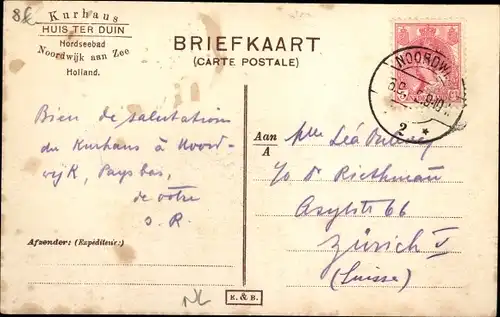 8k
Kurhaus
HUIS TER DUIN
Nordseebad
Noordwijk aan Zee
Holland.
BRIEFKAART
(CARTE POSTALE)
NOORDW
2 *
Bien de salutations
du Kurhaus à Noord-
wijk, Pays bas,
de votre
S. R.
Afzender: (Expéditeur:)
NL
K. & B.
Aan
A
Mlle Léa
c/o Dr Riethmann
Asylstr 66
Zürich V
(Suisse)